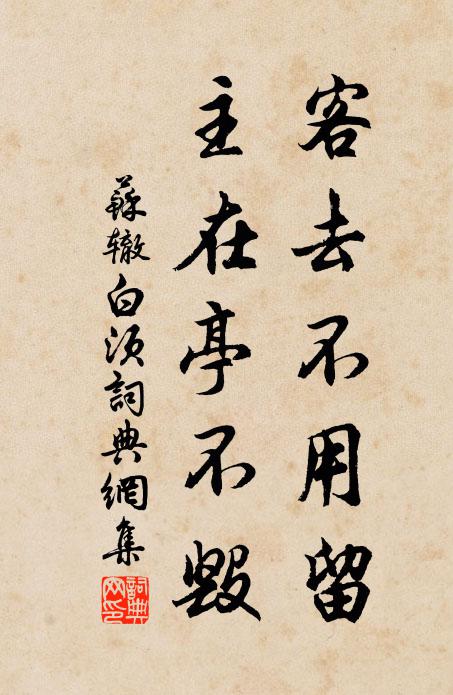 客去不用留
主在亭不毀
蘇辙白須詞典網集
詞典網印